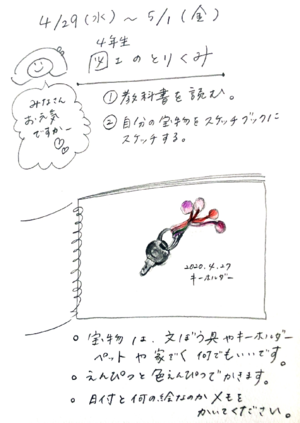 4/29(水)～5/1(金)
4年生
図工のとりくみ
みなさん
お元気
ですかー
①教科書を読む。
②自分の宝物をスケッチブックに
スケッチする。
2020.4.27
キーホルダー
○宝物は、文ぼう具やキーホルダー
ペットや家でく何でもいいです。
○えんぴつと色えんぴつでかきます。
○日付と何の絵なのかメモを
かいてください。